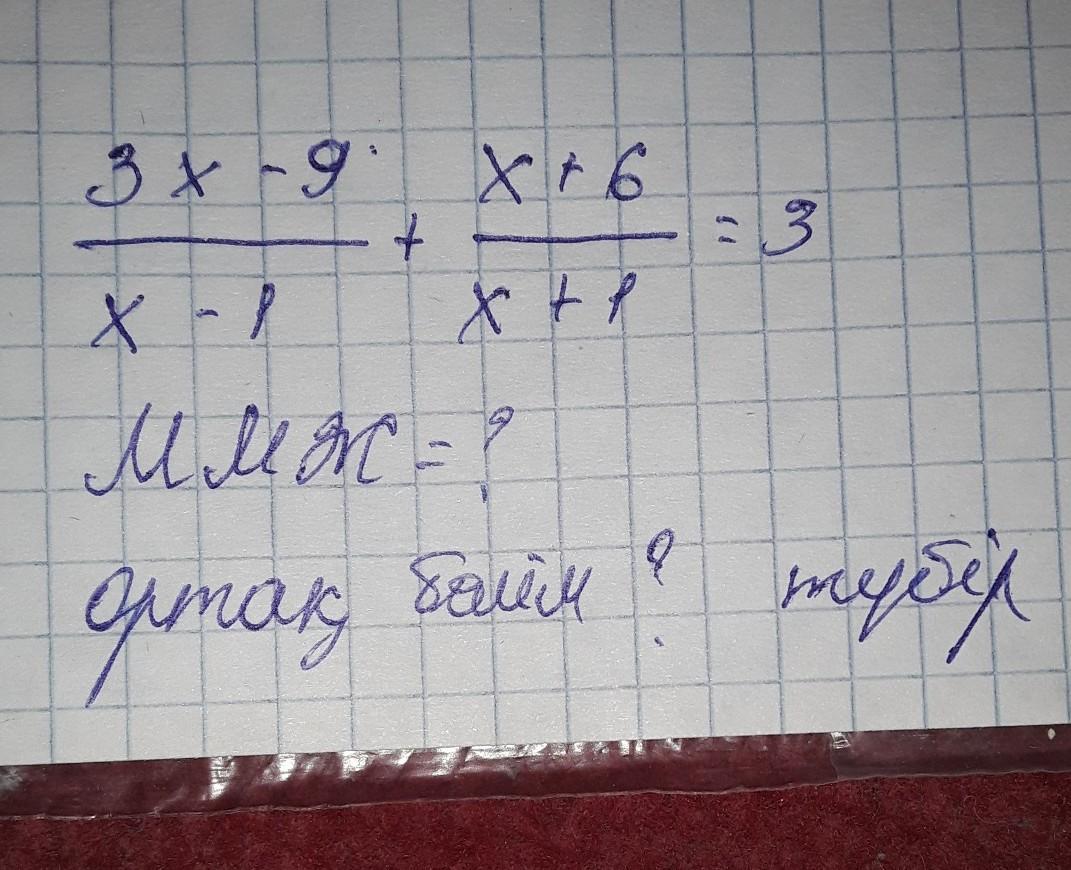 3x - 9 / x - 1 + x + 6 / x + 1 = 3
ММЖ = ?
ортақ бөлім ? түбір